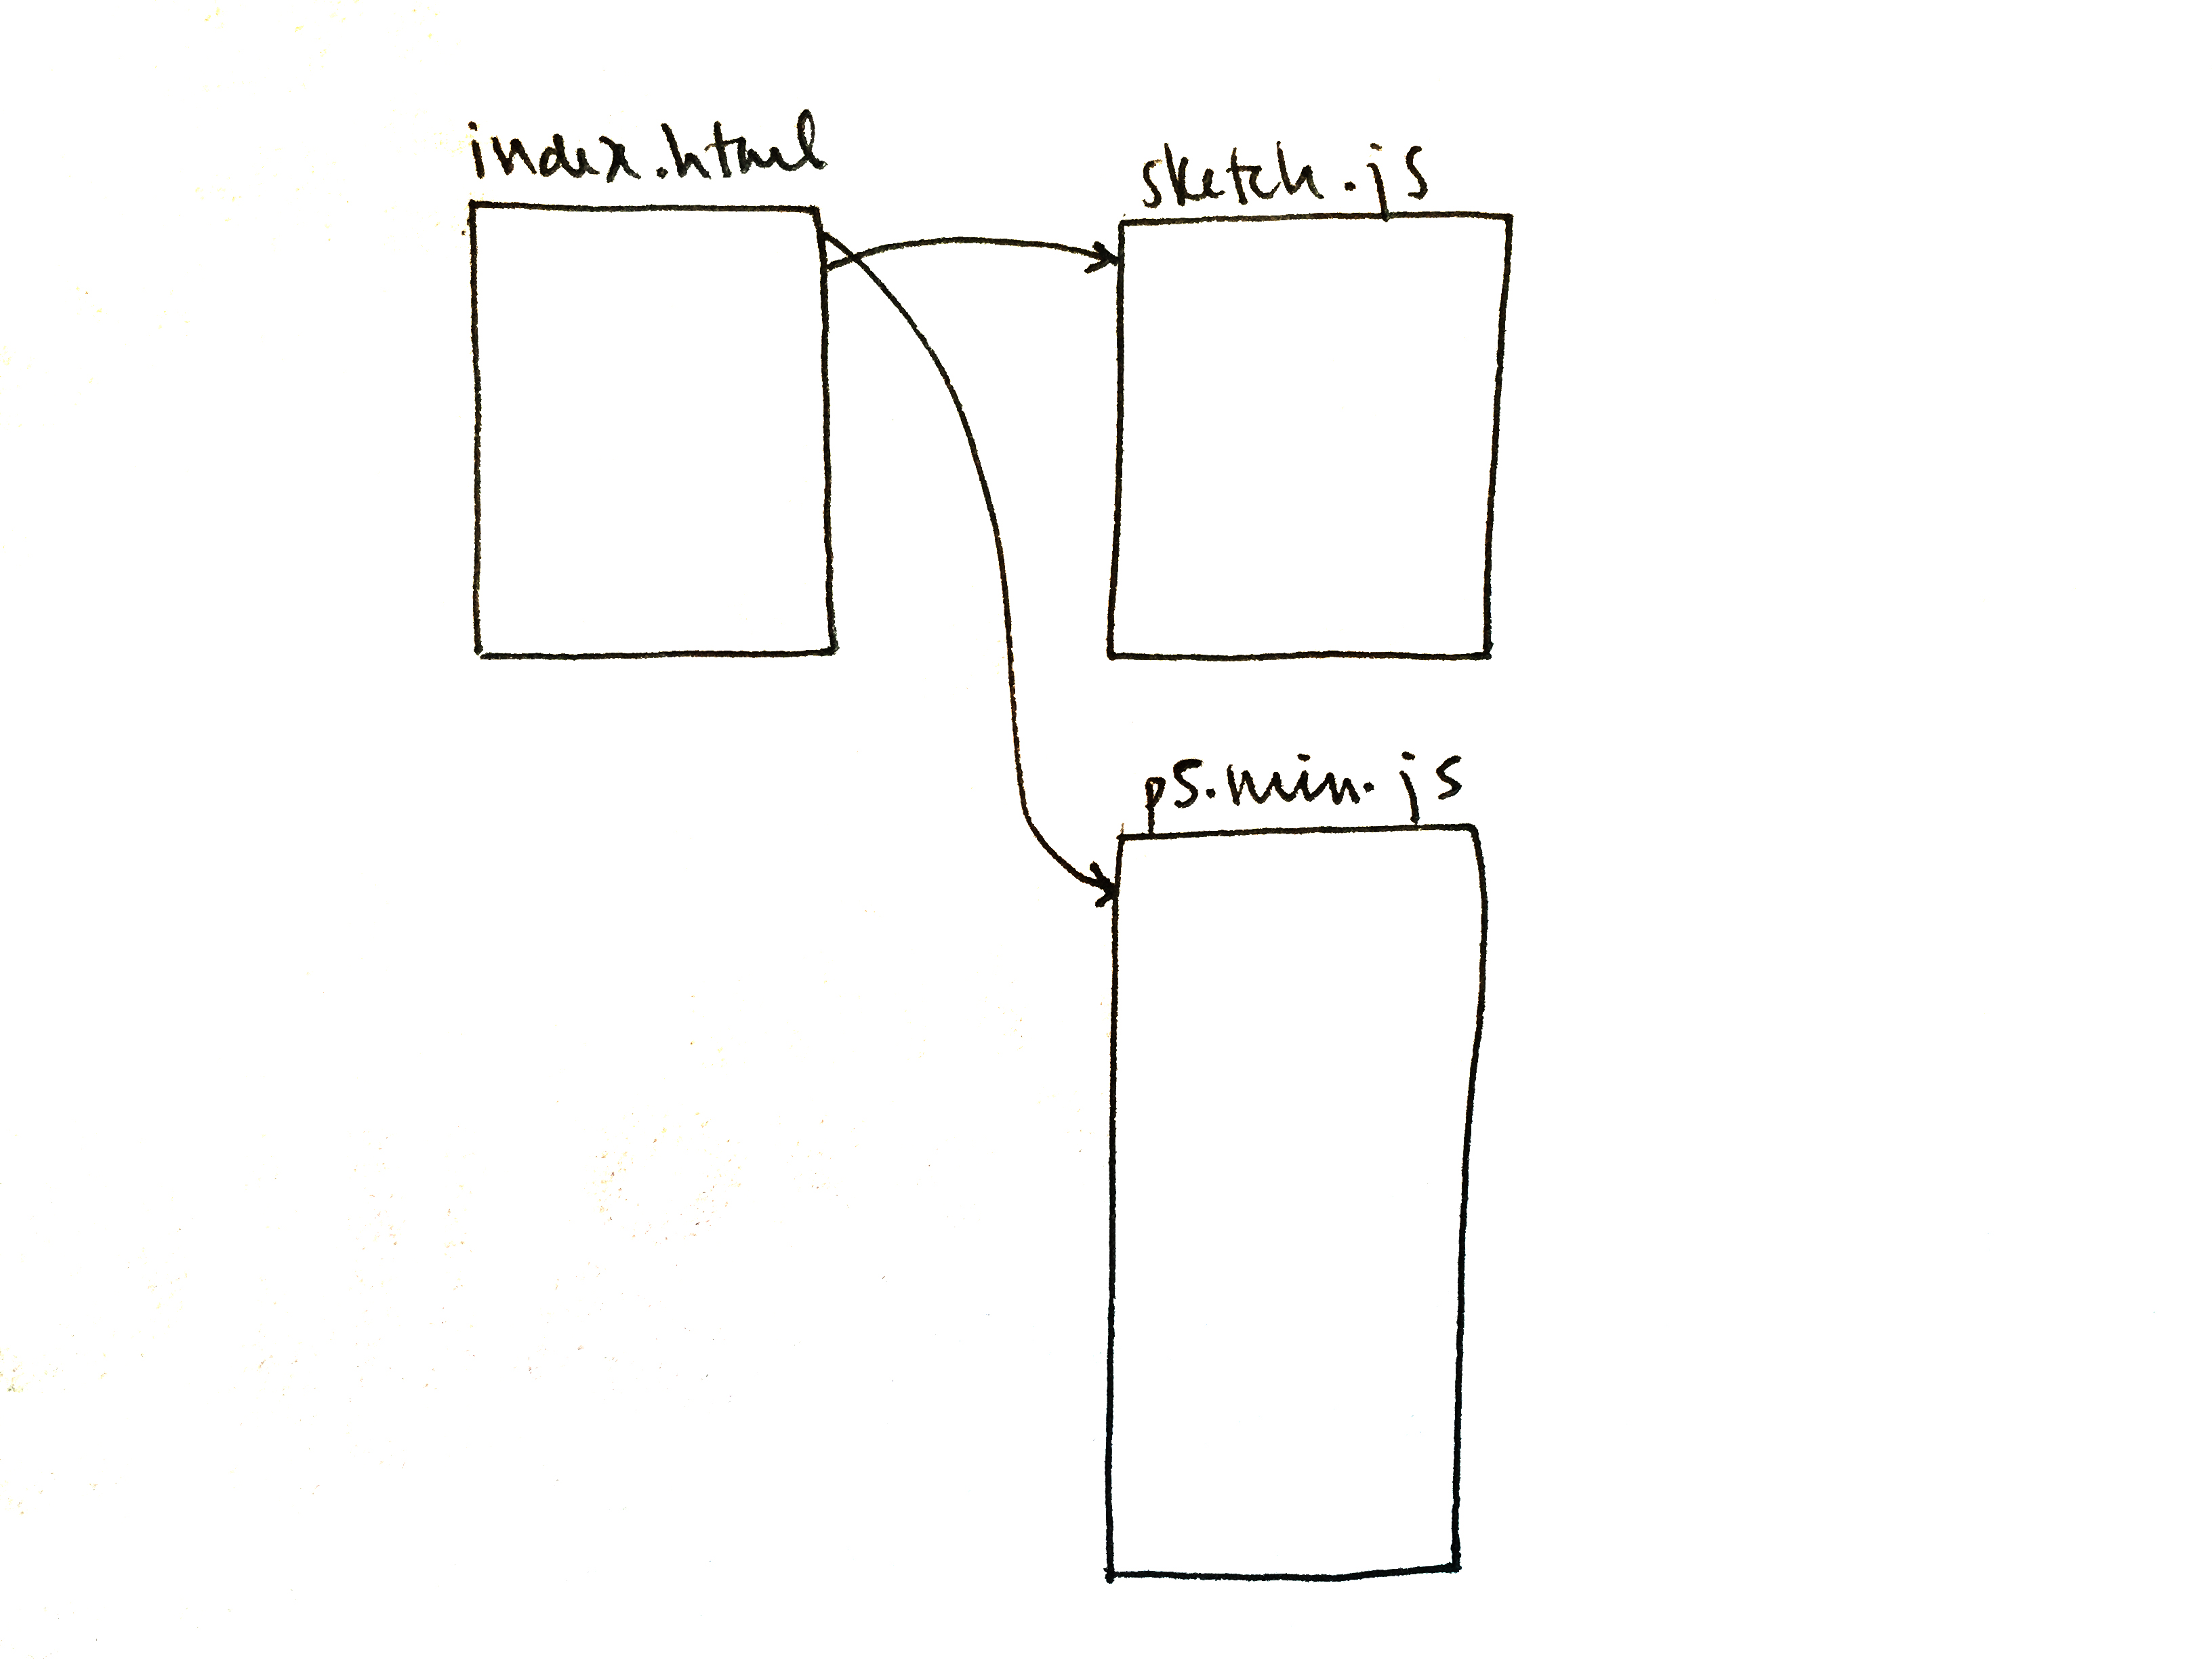 index.html
sketch.js
p5.min.js